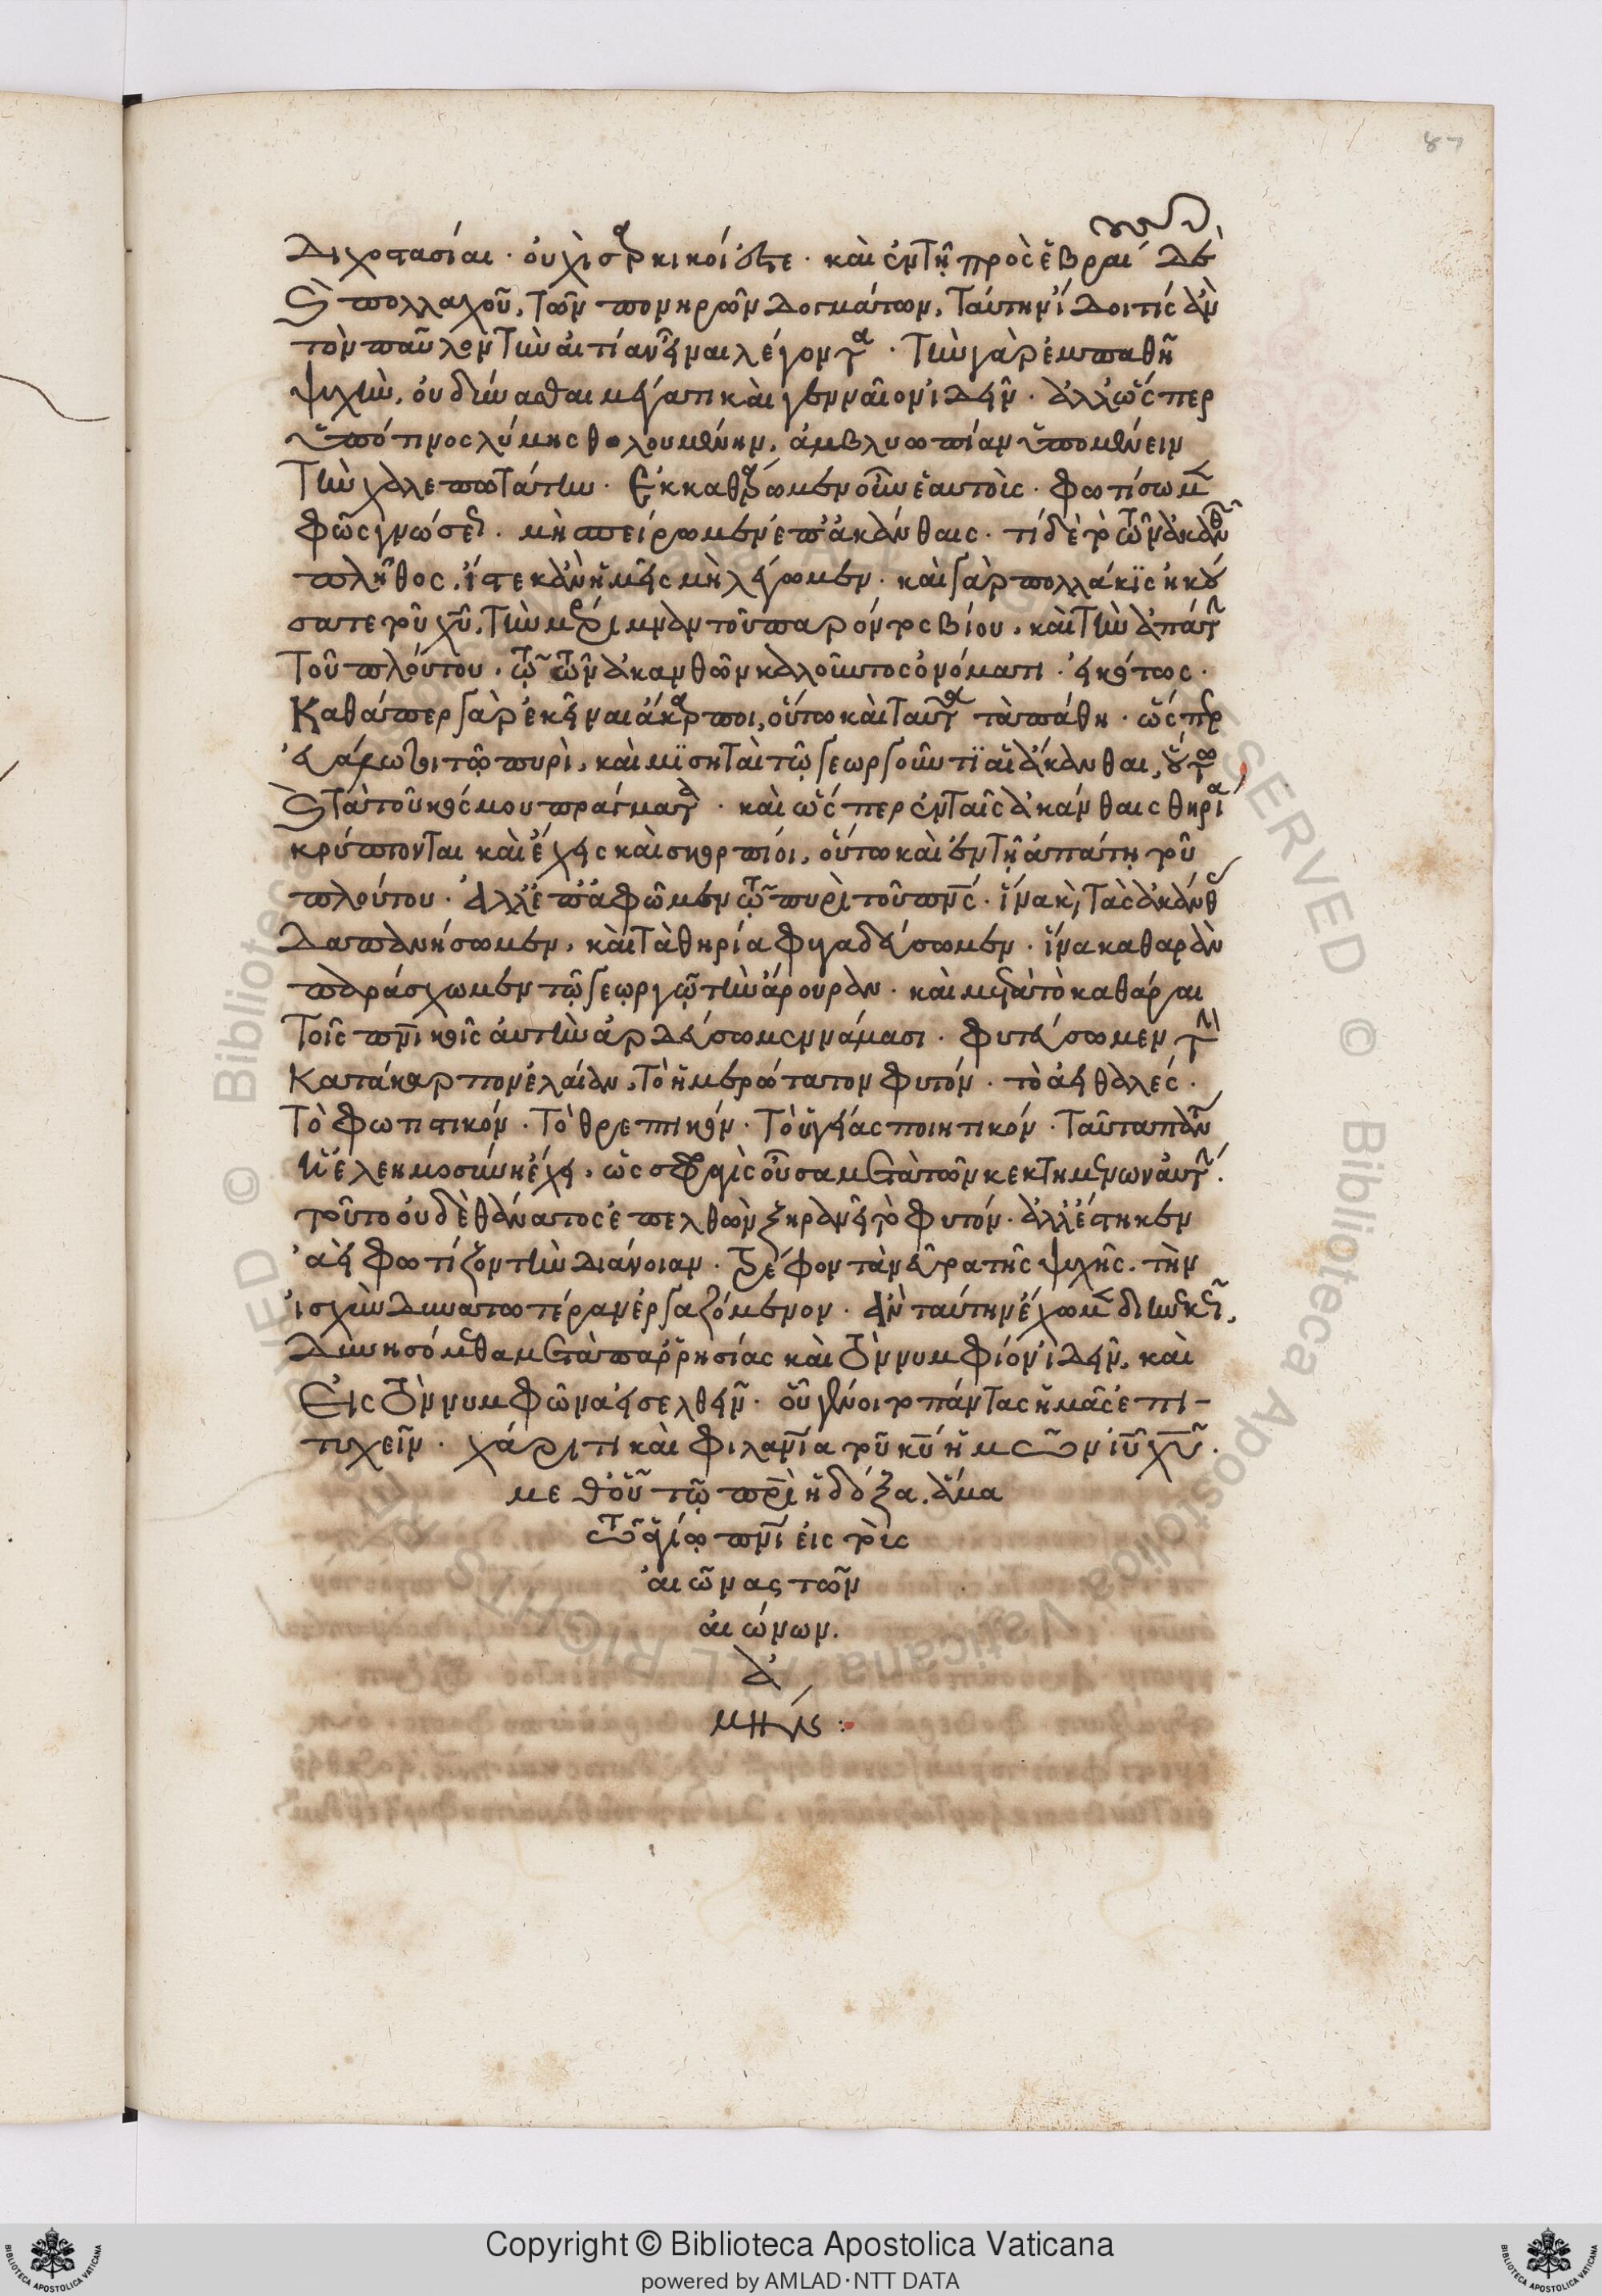 87
διχοστασίαι · οὐχὶ σαρκικοί ἐστε · καὶ ἐν τῇ πρὸς ἑβραί δὲ
πολλαχοῦ, τῶν πονηρῶν δογμάτων, ταύτην ἴδοι τίς ἂν
τὸν παῦλον τὴν αἰτίαν εἶναι λέγοντα · τὴν γὰρ ἐμπαθῆ
ψυχὴν, οὐ δύνασθαι μέγα τι καὶ γενναῖον ἰδεῖν · ἀλλ' ὥσπερ
ὑπό τινος λύμης θολουμένην, ἀμβλυωπίαν ὑπομένειν
τὴν χαλεπωτάτην · Ἐκκαθάρωμεν οὖν ἑαυτοὺς · φωτίσωμεν
φῶς γνώσεως · μὴ σπείρωμεν ἐπ' ἀκάνθαις · τί δὲ τὸ τῶν ἀκανθῶν
πλῆθος, ἴστε κἂν ἡμεῖς μὴ λέγωμεν · καὶ γὰρ πολλάκις ἠκού
σατε τοῦ χυ, τὴν μέριμναν τοῦ παρόντος βίου, καὶ τὴν ἀπάτην
τοῦ πλούτου, τῷ τῶν ἀκανθῶν καλοῦντος ὀνόματι · εἰκότως ·
Καθάπερ γὰρ ἐκεῖναι ἄκαρποι, οὕτω καὶ ταῦτα τὰ πάθη · ὥσπερ
εὐάλωτοι τῷ πυρὶ, καὶ μισηταὶ τῷ γεωργοῦντι αἱ ἄκανθαι, οὕτω
τὰ τοῦ κόσμου πράγματα · καὶ ὥσπερ ἐν ταῖς ἀκάνθαις θηρία
κρύπτονται καὶ ἔχεις καὶ σκορπίοι, οὕτω καὶ ἐν τῇ ἀπάτῃ τοῦ
πλούτου · Ἀλλ' ἐπαφῶμεν τῷ πυρὶ τοῦ πνς · ἵνα κ τὰς ἀκάνθας
δαπανήσωμεν, καὶ τὰ θηρία φυγαδεύσωμεν · ἵνα καθαρὰν
παράσχωμεν τῷ γεωργῷ τὴν ἄρουραν · καὶ μετὰ τὸ καθάραι
τοῖς πνικοῖς αὐτὴν ἀρδεύσωμεν νάμασι · φυτεύσωμεν τὴν
κατάκαρπον ἐλαίαν, τὸ ἡμερώτατον φυτόν · τὸ ἀειθαλές ·
Τὸ φωτιστικόν · τὸ θρεπτικόν · τὸ ὑγείας ποιητικόν · ταῦτα πάντα
ἡ ἐλεημοσύνη ἔχει, ὡς σφραγὶς οὖσα μετὰ τῶν κεκτημένων αὐτήν.
τοῦτο οὐδὲ θάνατος ἐπελθὼν ξηραίνει τὸ φυτόν · ἀλλ' ἕστηκεν
ἀεὶ φωτίζον τὴν διάνοιαν · τρέφον τὰ νεῦρα τῆς ψυχῆς · τὴν
ἰσχὺν δυνατωτέραν ἐργαζόμενον · ἂν ταύτην ἔχωμεν διηνεκῶς,
δυνησόμεθα μετὰ παρρησίας καὶ τὸν νυμφίον ἰδεῖν, καὶ
Εἰς τὸν νυμφῶνα εἰσελθεῖν · οὗ γένοιτο πάντας ἡμᾶς ἐπι-
τυχεῖν · χάριτι καὶ φιλανια τοῦ κυ ἡμῶν ιυ χυ.
μεθ' οὗ τῷ πρι ἡ δόξα. ἅμα
τῷ ἁγίῳ πνι εἰς τοὺς
αἰῶνας τῶν
αἰώνων.
ἀ
μήν :
Copyright © Biblioteca Apostolica Vaticana
powered by AMLAD·NTT DATA